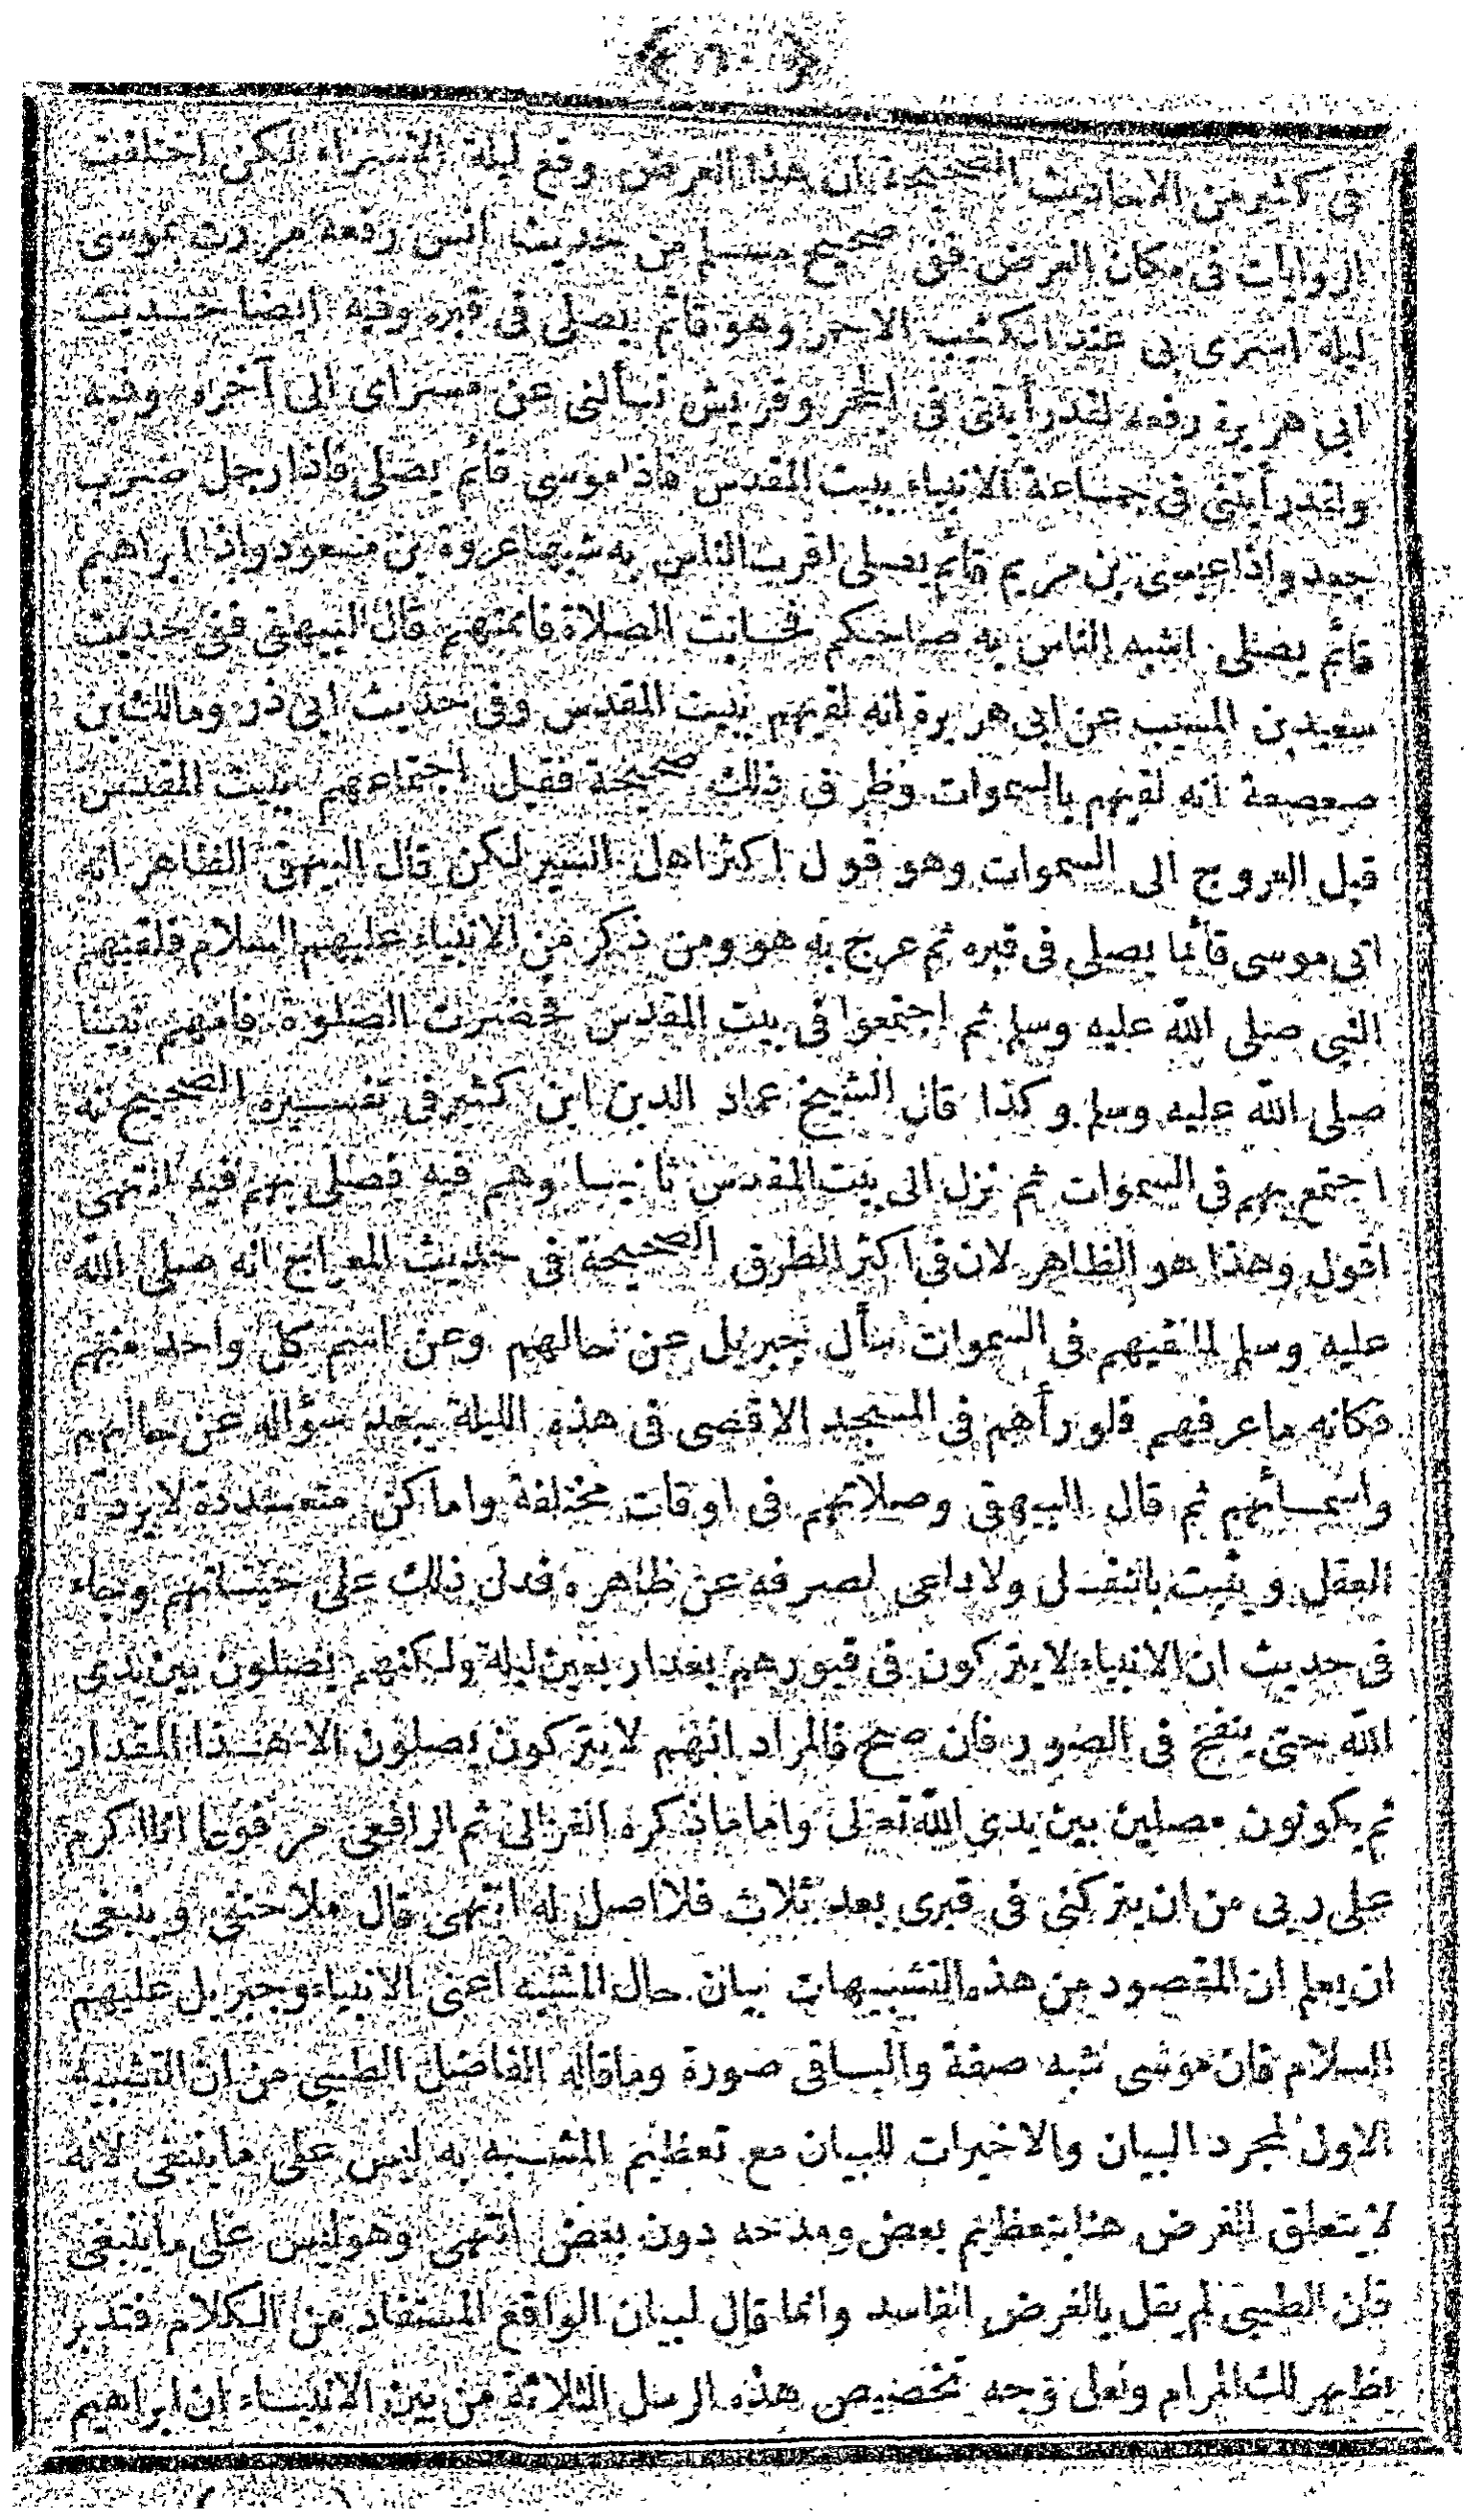 في كثير من الاحاديث الصحيحة ان هذا العرض وقع ليلة الاسراء لكن اختلفت
الروايات في مكان العرض ففي صحيح مسلم من حديث انس رفعه مررت بموسى
ليلة اسرى بى عند الكثيب الاحمر وهو قائم يصلى فى قبره وفيه ايضا حديث
ابى هريرة رفعه لقد رأيتنى فى الحجر وقريش تسألنى عن مسراى الى آخره وفيه
ولقد رأيتنى فى جماعة الانبياء ببيت المقدس فاذا موسى قائم يصلى فاذا رجل ضرب
جعد واذا عيسى بن مريم قائم يصلى اقرب الناس به شبها عروة بن مسعود واذا ابراهيم
قائم يصلى اشبه الناس به صاحبكم فحانت الصلاة فاممتهم قال البيهقى ففى حديث
سعيد بن المسيب عن ابى هريرة انه لقيهم ببيت المقدس وفى حديث ابى ذر ومالك بن
صعصعة انه لقيهم بالسموات وطرق ذلك صحيحة فقيل اجتماعهم ببيت المقدس
قبل العروج الى السموات وهو قول اكثر اهل السير لكن قال البيهقى الظاهر انه
اتى موسى قائما يصلى فى قبره ثم عرج به هو ومن ذكر من الانبياء عليهم السلام فلقيهم
النبى صلى الله عليه وسلم ثم اجتمعوا فى بيت المقدس فحضرت الصلوة فامهم نبينا
صلى الله عليه وسلم وكذا قال الشيخ عماد الدين ابن كثير فى تفسيره الصحيح انه
اجتمع بهم فى السموات ثم نزل الى بيت المقدس ثانيا وهم فيه فصلى بهم فيه انتهى
اقول وهذا هو الظاهر لان فى اكثر الطرق الصحيحة فى حديث المعراج انه صلى الله
عليه وسلم لما لقيهم فى السموات سأل جبريل عن حالهم وعن اسم كل واحد منهم
فكانه ما عرفهم فلو رأهم فى المسجد الاقصى فى هذه الليلة يبعد سؤاله عن حالهم
واسمائهم ثم قال البيهقى وصلاتهم فى اوقات مختلفة واماكن متعددة لا يرده
العقل ويثبت بالنقل ولا داعى لصرفه عن ظاهره فدل ذلك على حياتهم وجاء
فى حديث ان الانبياء لا يتركون فى قبورهم بعد اربعين ليلة ولكنهم يصلون بين يدى
الله حتى ينفخ فى الصور فان صح فالمراد انهم لا يتركون يصلون الا هذا المقدار
ثم يكونون مصلين بين يدى الله تعالى واما ما ذكره الغزالى ثم الرافعى مرفوعا انا اكرم
على ربى من ان يتركنى فى قبرى بعد ثلاث فلا اصل له انتهى قال ملا حنفى وينبغى
ان يعلم ان المقصود من هذه التشبيهات بيان حال المشبه اعنى الانبياء وجبريل عليهم
السلام فان موسى شبه صفة والباقى صورة وما قاله الفاضل الطيبى من ان التشبيه
الاول لمجرد البيان والاخيرات للبيان مع تعظيم المشبه به ليس على ما ينبغى لانه
لا يتعلق الغرض هنا بتعظيم بعض ومدحه دون بعض انتهى وهو ليس على ما ينبغى
فان الطيبى لم يقل بالغرض الفاسد وانما قال لبيان الواقع المستفاد من الكلام فتدبر
يظهر لك المرام ولعل وجه تخصيص هذه الرسل الثلاثة من بين الانبياء ان ابراهيم